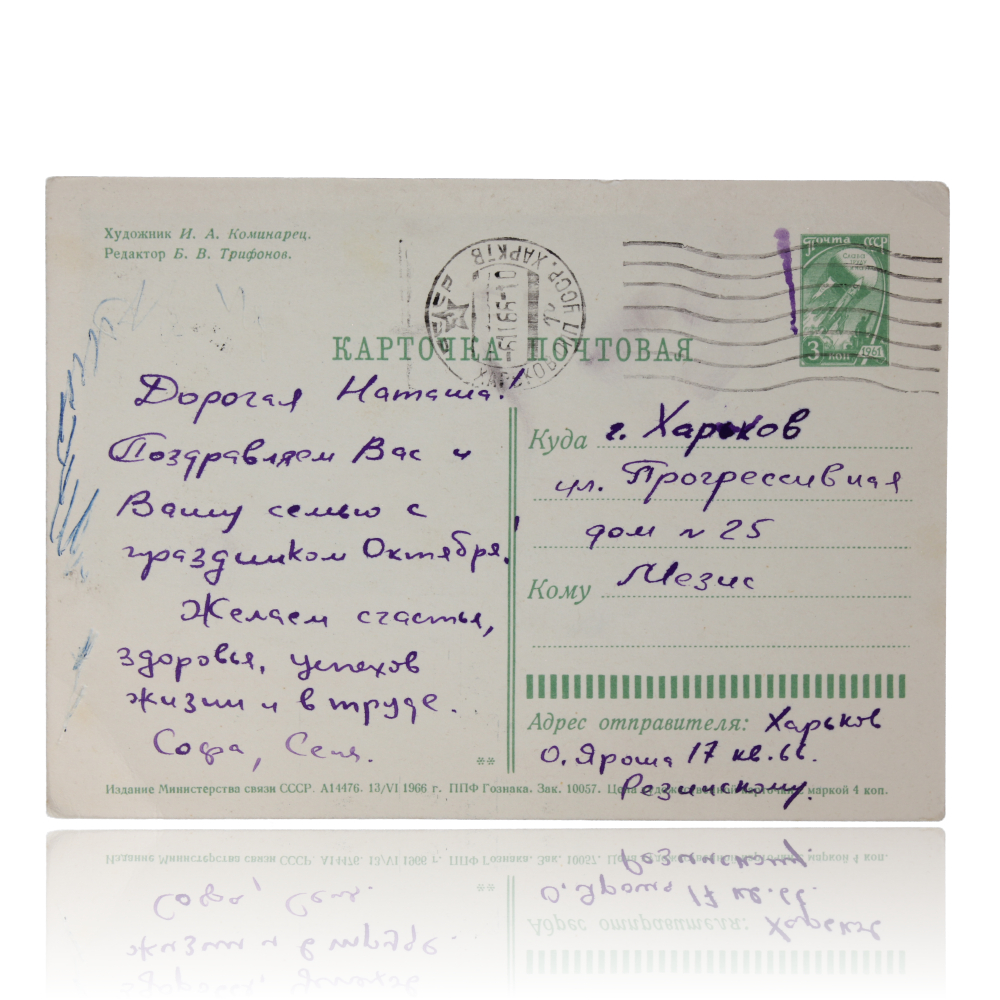 Художник И. А. Коминарец.
Редактор Б. В. Трифонов.
ПОЧТА СССР
3 КОП
1961
УССР. ХАРКІВ
ХАРЬКОВ
КАРТОЧКА ПОЧТОВАЯ
Дорогая Наташа!
Поздравляем Вас и
Вашу семью с
праздником Октября!
Желаем счастья,
здоровья, успехов
жизни и в труде.
Софа, Сеня.
Куда г. Харьков
ул. Прогрессивная
дом № 25
Кому Мезис
Адрес отправителя: Харьков
О. Яроша 17 кв. 66.
Резинскому.
**
Издание Министерства связи СССР. А14476. 13/VI 1966 г. ППФ Гознака. Зак. 10057. Цена художественной карточки с маркой 4 коп.